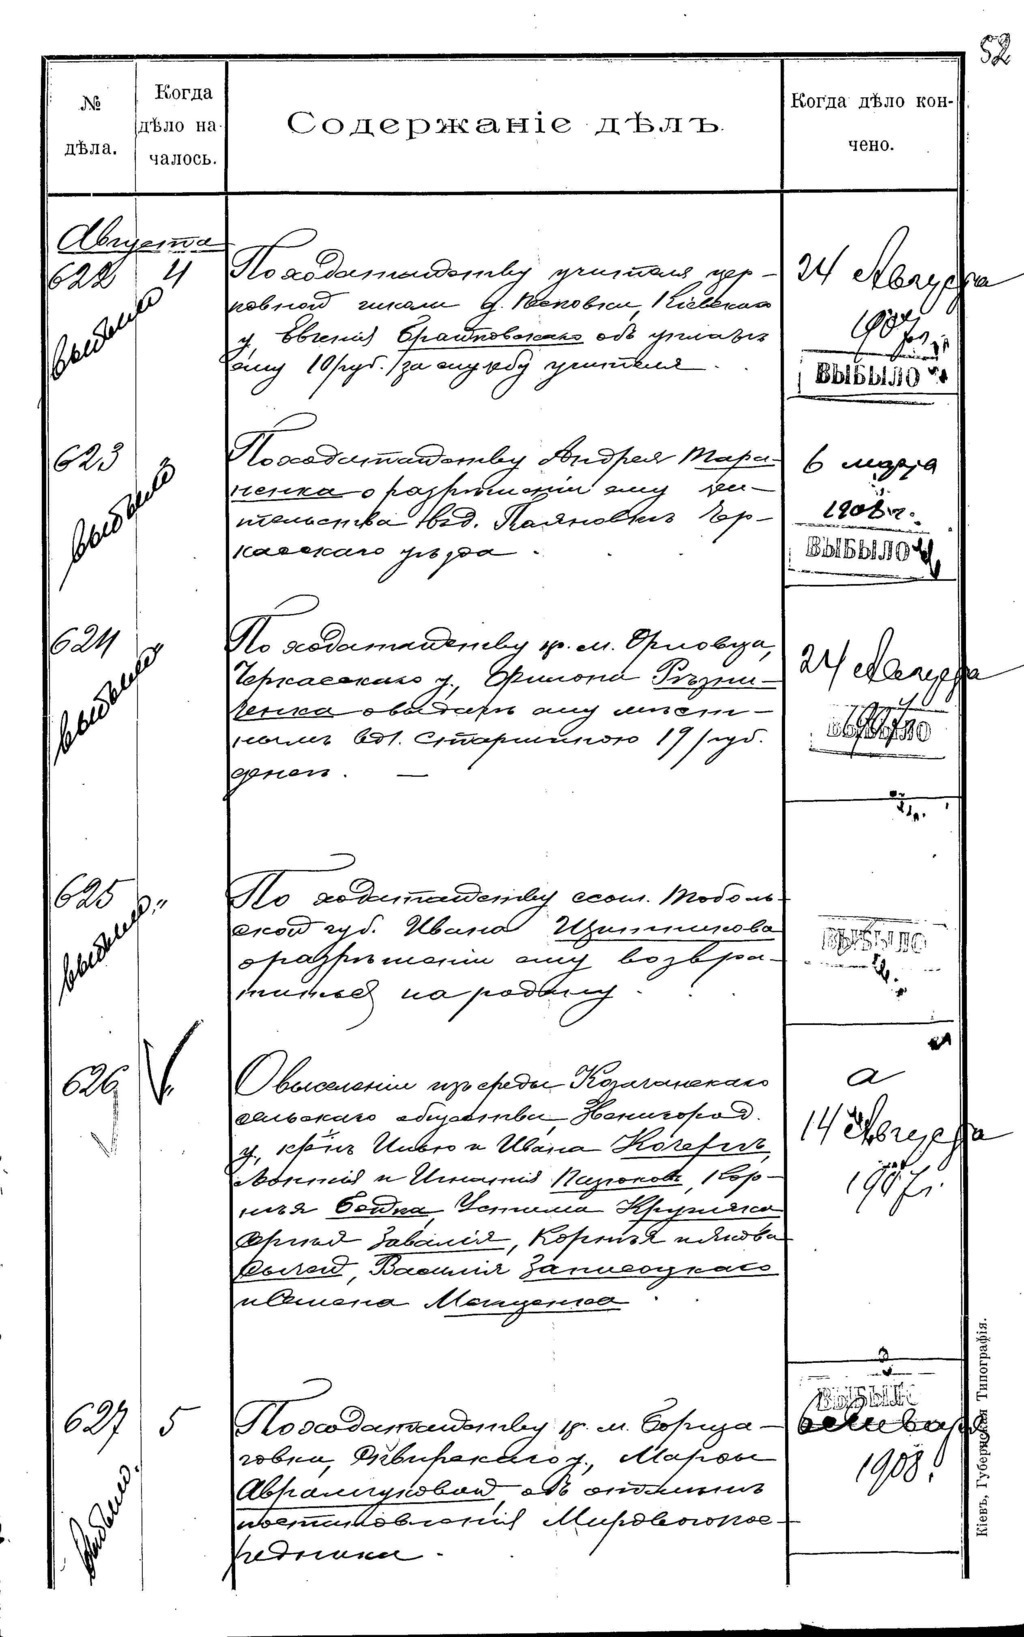 52
№ дѣла.
Когда дѣло на-чалось.
Содержаніе дѣлъ.
Когда дѣло кон-чено.
Августа
622 4
выбыло
По ходатайству учителя цер-
ковной школы д. Кіевскаго
у. Евгенія объ уплатѣ
ему 10 руб. за службу учителя.
24 Августа
1907 г.
ВЫБЫЛО
623
выбыло
По ходатайству Андрея Тара-
ненка о разрѣшеніи ему жи-
тельства въ д. Чер-
касскаго уѣзда
6 марта
1908 г.
ВЫБЫЛО
624 "
выбыло
По ходатайству кр. м. Орловца,
Черкасскаго у., Рѣзни-
ченка о выдачѣ ему мѣст-
нымъ вол. Старшиною 19 руб.
денег.
24 Августа
1907
ВЫБЫЛО
625 "
выбыло
По ходатайству ссыл. Тоболь-
ской губ. Ивана
о разрѣшеніи ему возвра-
титься на родину.
ВЫБЫЛО
626
О выселеніи изъ среды Козачанскаго
сельскаго общества, Звенигород.
у., кр-нъ Илью и Ивана
и Игнатія Кор-
нѣя Бойка, Устима
Сергѣя Завалія, Корнѣя и Якова
Василія
и Семена
14 Августа
1907 г.
627 5
выбыло.
По ходатайству кр. м. Борща-
говки, Сквирскаго у., Марѳы
Аврамчуковой, объ отмѣнѣ
постановленія Мироваго пос-
редника.
ВЫБЫЛ
1908.
Кіевъ, Губернская Типографія.